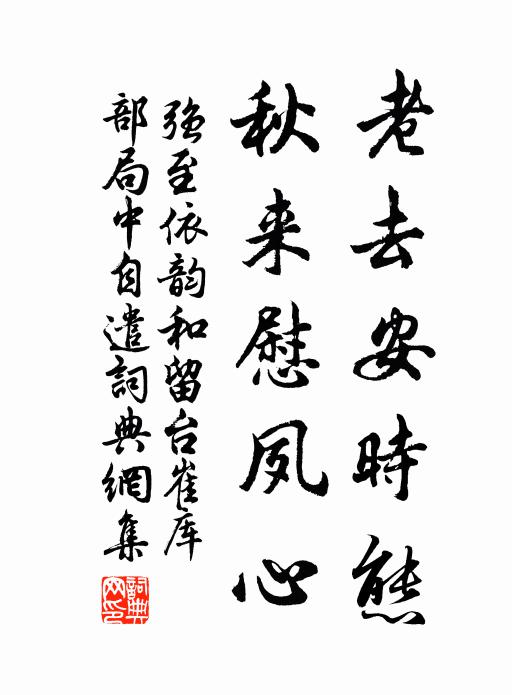 老去安時態
秋来慰夙心
強至依韵和留台崔库
部局中自遣詞典網集
詞典网印